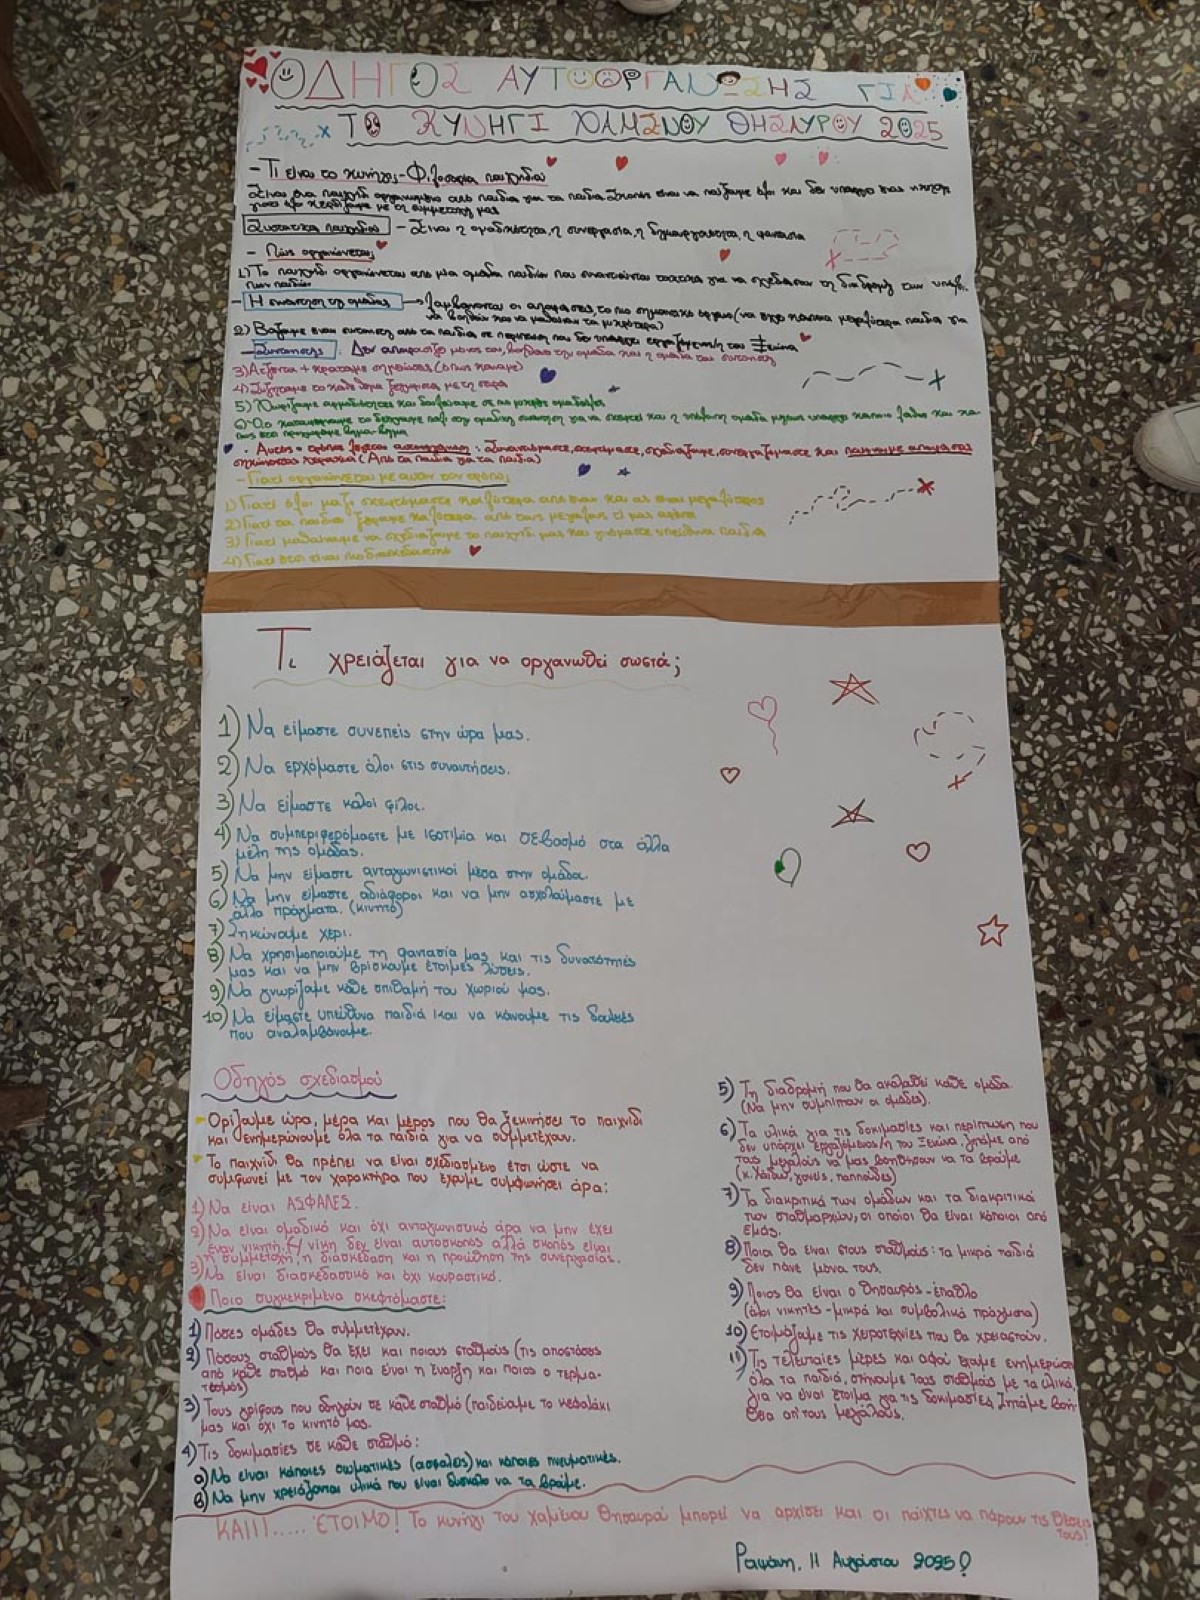 ΟΔΗΓΟΣ ΑΥΤΟΟΡΓΑΝΩΣΗΣ ΓΙΑ
ΤΟ ΚΥΝΗΓΙ ΧΑΜΕΝΟΥ ΘΗΣΑΥΡΟΥ 2025
- Τι είναι το κυνήγι - Φιλοσοφία παιχνιδιού
Είναι ένα παιχνίδι οργανωμένο από παιδιά για τα παιδιά. Σκοπός είναι να παίξουμε όλοι και δεν υπάρχει ένας νικητής
γιατί όλοι κερδίζουμε με τη συμμετοχή μας
Συστατικά παιχνιδιού - Είναι η ομαδικότητα, η συνεργασία, η δημιουργικότητα, η φαντασία
- Πώς οργανώνεται;
1) Το παιχνίδι οργανώνεται από μία ομάδα παιδιών που συναντιούνται τακτικά για να σχεδιάσουν τη διαδρομή των
των παιδιών
- Η συνάντηση της ομάδας → Λαμβάνονται οι αποφάσεις, το πιο σημαντικό όργανο (να έχει κάποια μεγαλύτερα παιδιά για
να βοηθάν και να μαθαίνουν τα μικρότερα)
2) Βάζουμε έναν συντονιστή από τα παιδιά σε περίπτωση που δεν υπάρχει εργαζόμενος/η του Ξενώνα
- Συντονιστής: Δεν αποφασίζει μόνος του, βοηθάει την ομάδα και η ομάδα τον συντονιστή
3) Ατζέντα + κρατάμε σημειώσεις (όπως κάναμε)
4) Συζητάμε το κάθε θέμα ξεχωριστά με τη σειρά
5) Χωρίζουμε αρμοδιότητες και δουλεύουμε σε πιο μικρές ομάδες
6) Ό,τι καταλήγουμε το δείχνουμε μαζί στη ομαδική συνάντηση για να σκεφτεί και η υπόλοιπη ομάδα μήπως υπάρχει κάποιο λάθος και
πως θα προχωράμε βήμα-βήμα
Αυτός ο τρόπος λέγεται αυτοοργάνωση: Συναντιόμαστε, σκεφτόμαστε, σχεδιάζουμε, συνεργαζόμαστε και παίρνουμε αποφάσεις
σηκώνοντας χεράκια (Από τα παιδιά για τα παιδιά)
- Γιατί οργανώνεται με αυτόν τον τρόπο;
1) Γιατί όλοι μαζί σκεφτόμαστε καλύτερα από έναν και ας είναι μεγαλύτερος
2) Γιατί τα παιδιά ξέρουμε καλύτερα από τους μεγάλους τι μας αρέσει
3) Γιατί μαθαίνουμε να σχεδιάζουμε το παιχνίδι μας και γινόμαστε υπεύθυνα παιδιά
4) Γιατί έτσι είναι πιο διασκεδαστικό
Τι χρειάζεται για να οργανωθεί σωστά;
1) Να είμαστε συνεπείς στην ώρα μας.
2) Να ερχόμαστε όλοι στις συναντήσεις.
3) Να είμαστε καλοί φίλοι.
4) Να συμπεριφερόμαστε με ισοτιμία και σεβασμό στα άλλα
μέλη της ομάδας.
5) Να μην είμαστε ανταγωνιστικοί μέσα στην ομάδα.
6) Να μην είμαστε αδιάφοροι και να μην ασχολούμαστε με
άλλα πράγματα. (κινητό)
7) Σηκώνουμε χέρι.
8) Να χρησιμοποιούμε τη φαντασία μας και τις δυνατότητές
μας και να μην βρίσκουμε έτοιμες λύσεις.
9) Να γνωρίζαμε κάθε σπιθαμή του χωριού μας.
10) Να είμαστε υπεύθυνα παιδιά και να κάνουμε τις δουλειές
που αναλαμβάνουμε.
Οδηγός σχεδιασμού
Ορίζουμε ώρα, μέρα και μέρος που θα ξεκινήσει το παιχνίδι
και ενημερώνουμε όλα τα παιδιά για να συμμετέχουν.
Το παιχνίδι θα πρέπει να είναι σχεδιασμένο έτσι ώστε να
συμφωνεί με τον χαρακτήρα που έχουμε συμφωνήσει άρα:
1) Να είναι ΑΣΦΑΛΕΣ.
2) Να είναι ομαδικό και όχι ανταγωνιστικό άρα να μην έχει
έναν νικητή. Η νίκη δεν είναι αυτοσκοπός αλλά σκοπός είναι
η συμμετοχή, η διασκέδαση και η προώθηση της συνεργασίας.
3) Να είναι διασκεδαστικό και όχι κουραστικό.
Πιο συγκεκριμένα σκεφτόμαστε:
1) Πόσες ομάδες θα συμμετέχουν.
2) Πόσους σταθμούς θα έχει και ποιους σταθμούς (τις αποστάσεις
από κάθε σταθμό και ποια είναι η έναρξη και ποιος ο τερμα-
τισμός)
3) Τους γρίφους που οδηγούν σε κάθε σταθμό (παιδεύουμε το κεφαλάκι
μας και όχι το κινητό μας.
4) Τις δοκιμασίες σε κάθε σταθμό:
α) Να είναι κάποιες σωματικές (ασφαλείς) και κάποιες πνευματικές.
β) Να μην χρειάζονται υλικά που είναι δύσκολο να τα βρούμε.
5) Τη διαδρομή που θα ακολουθεί κάθε ομάδα.
(Να μην συμπίπτουν οι ομάδες).
6) Τα υλικά για τις δοκιμασίες και περίπτωση που
δεν υπάρχει εργαζόμενος/η του Ξενώνα, ζητάμε από
τους μεγάλους να μας βοηθήσουν να τα βρούμε
(κ. Χάιδω, γονείς, παππούδες)
7) Τα διακριτικά των ομάδων και τα διακριτικά
των σταθμαρχών, οι οποίοι θα είναι κάποιοι από
εμάς.
8) Ποιοι θα είναι στους σταθμούς: τα μικρά παιδιά
δεν πάνε μόνα τους.
9) Ποιος θα είναι ο θησαυρός - έπαθλο
(όλοι νικητές - μικρά και συμβολικά πράγματα)
10) Ετοιμάζουμε τις χειροτεχνίες που θα χρειαστούν.
11) Τις τελευταίες μέρες και αφού έχουμε ενημερώσει
όλα τα παιδιά, στήνουμε τους σταθμούς με τα υλικά,
για να είναι έτοιμα για τις δοκιμασίες. Ζητάμε βοή-
θεια απ' τους μεγάλους.
ΚΑΙ!!..... ΕΤΟΙΜΟ! Το κυνήγι του χαμένου θησαυρού μπορεί να αρχίσει και οι παίχτες να πάρουν τις θέσεις
τους!
Ραψάνη, 11 Αυγούστου 2025!